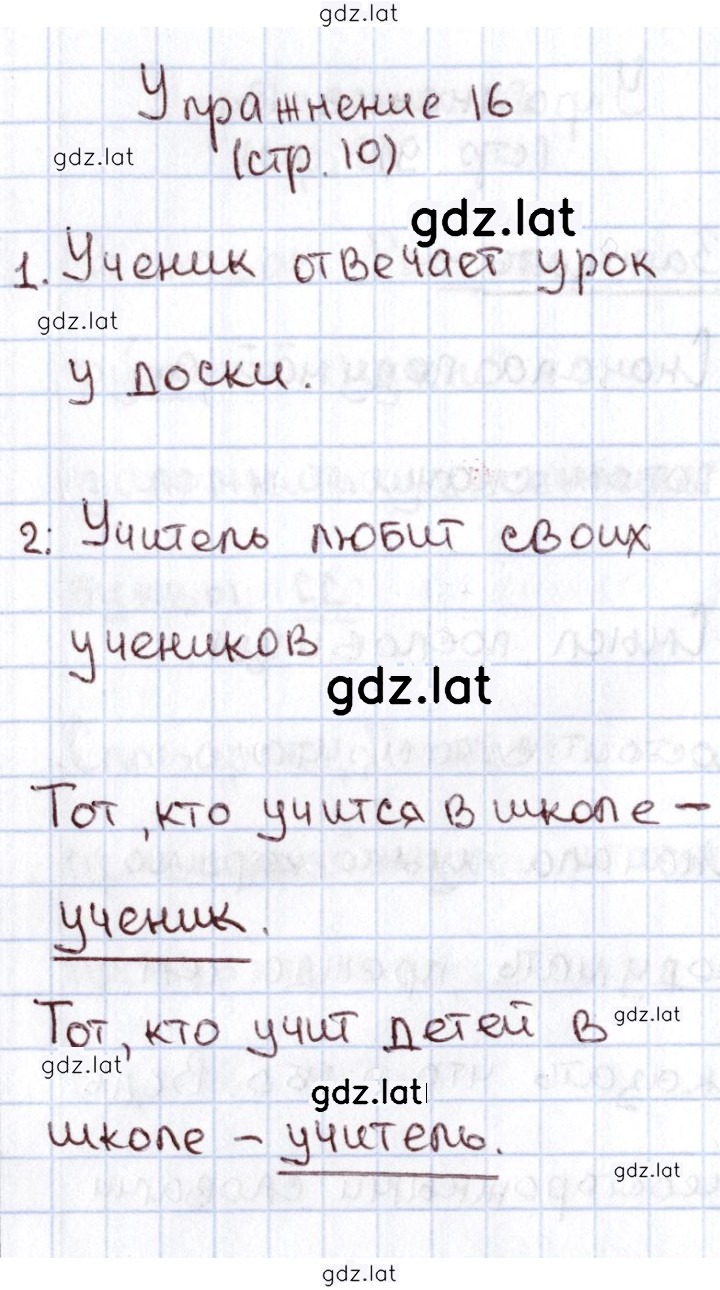 gdz.lat
Упражнение 16
gdz.lat
(стр. 10)
gdz.lat
1. Ученик отвечает урок
gdz.lat
у доски.
2. Учитель любит своих
учеников
gdz.lat
Тот, кто учится в школе –
ученик.
Тот, кто учит детей в
gdz.lat
gdz.lat
gdz.lat
школе – учитель.
gdz.lat
gdz.lat